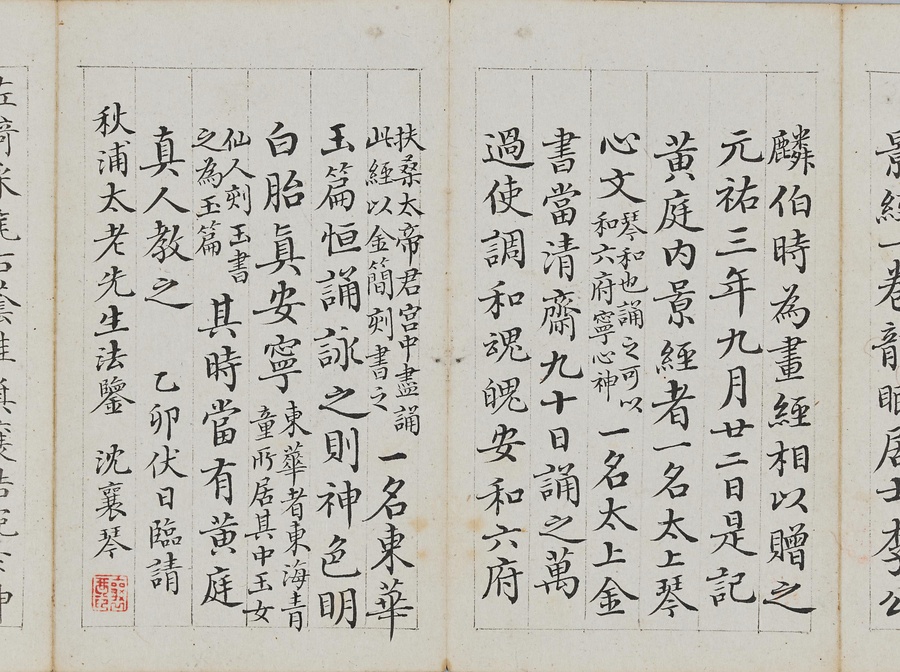 景經一卷龍眠居士李公
麟伯時為畫經相以贈之
元祐三年九月廿二日是記
黃庭內景經者一名太上琴
心文琴和也誦之可以
和六府寧心神一名太上金
書當清齋九十日誦之萬
過使調和魂魄安和六府
扶桑太帝君宮中盡誦
此經以金簡刻書之一名東華
玉篇恒誦詠之則神色明
白胎真安寧東華者東海青
童所居其中玉女
仙人刻玉書
之為玉篇其時當有黃庭
真人教之 乙卯伏日臨請
秋浦太老先生法鑒 沈襄琴
左倚采旄右蔭桂旗攘皓腕於神